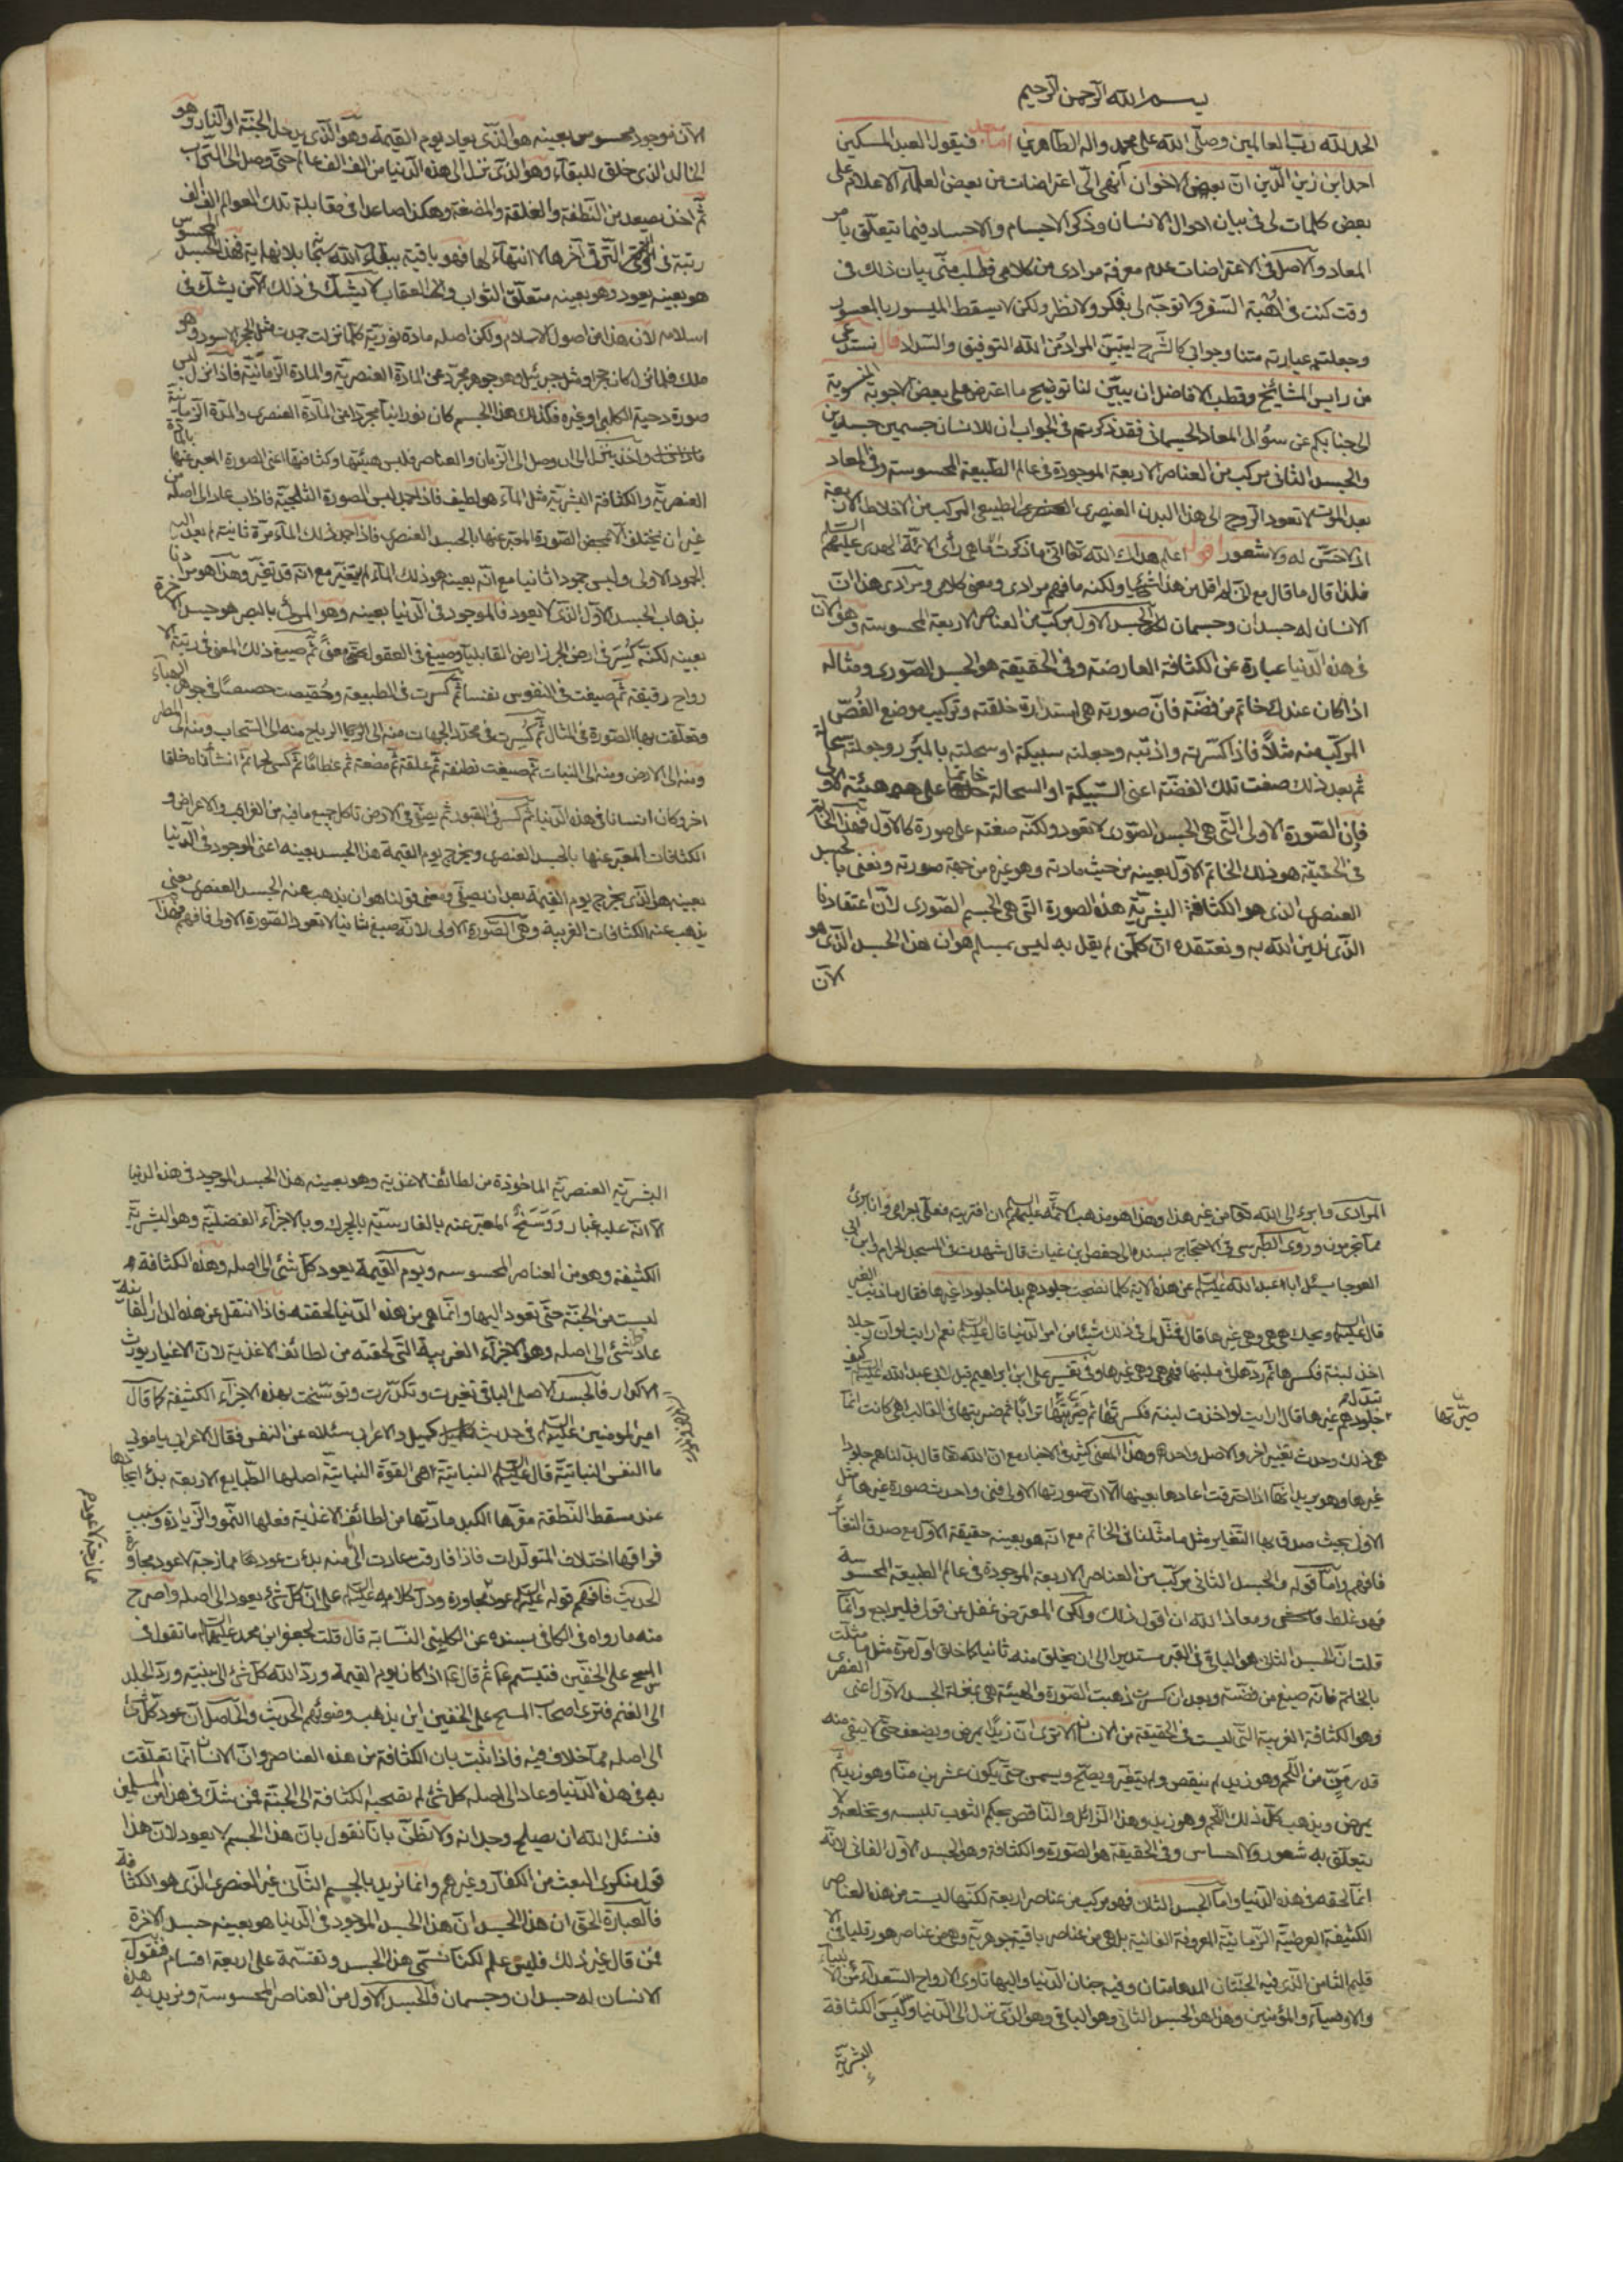 بسم الله الرحمن الرحيم
الحمد لله رب العالمين وصلى الله على محمد واله الطاهرين اما بعد فيقول العبد المسكين
احمد ابن زين الدين ان بعض الاخوان أنهى الىّ اعتراضات من بعض العلماء الاعلام على
بعض كلمات لى فى بيان احوال الانسان وذكر الاجسام والاجساد فيما يتعلق بامر
المعاد والاصل فى الاعتراضات عدم معرفة مرادى من كلامى فطلب منّى بيان ذلك فى
وقت كنت فى اُهْبة السفر ولا توجّه لى بفكر ولا نظر ولكن لا يسقط الميسور بالمعسور
وجعلت عبارته متنا وجوابى كالشرح ليتبيّن المراد ومن الله التوفيق والسداد قال نستدعى
من رايس المشائخ وقطب الافاضل ان يبيّن لنا توضيح ما اعترض على بعض الاجوبة المنسوبة
الى جنابكم عن سؤال المعاد الجسمانى فقد ذكرتم فى الجواب ان للانسان جسمين جسدين
والجسد الثانى مركب من العناصر الاربعة الموجودة فى عالم الطبيعة المحسوسة وفى المعاد
بعد الموت لا تعود الروح الى هذا البدن العنصرى الطبيعى المركب من الاخلاط الاربعة
اذ لا حسّ له ولا شعور اقول اعلم هداك الله تعالى ان ما ذكرت انما هى رأى الائمة الهدى عليهم السلم
فلذا قال ما قال مع انى لم اقل من هذا شيئا ولكنه ما فهم مرادى ومعنى كلامى ومرادى هذا ان
الانسان له جسدان وجسمان الجسد الاول مركب من العناصر الاربعة المحسوسة وهو الآن
فى هذه الدنيا عبارة عن الكثافة العارضة وفى الحقيقة هو الجسد الصورى ومثاله
اذا كان عندك خاتم من فضة فان صورته هى استدارة حلقته وتركيب موضع الفُصّ
المركب منه مثلًا فاذا كسرته واذبته وجعلته سبيكة او سحلته بالمبرد وجعلته سحالة
ثم بعد ذلك صغت تلك الفضة اعنى السبيكة او السحالة خاتما على هيئة الاولى
فان الصورة الاولى التى هى الجسد الصورى لا تعود ولكنه صغته على صورة كالاول فهذا الخاتم
فى الحقيقة هو ذلك الخاتم الاول بعينه من حيث مادته وهو غيره من جهة صورته ونعنى بالجسد
العنصرى الذى هو الكثافة البشرية هذه الصورة التى هى الجسم الصورى لان اعتقادنا
الذى ندين الله به ونعتقده ان كل من لم يقل به ليس بمسلم هو ان هذا الجسد الذى هو
الآن
الآن موجود محسوس بعينه هو الذى يعاد يوم القيمة وهو الذى يدخل الجنة او النار وهو
الخالد الذى خلق للبقاء وهو الذى نزل الى هذه الدنيا من الف الف عالم حتى وصل الى التراب
ثم اخذ يصعد من النطفة والعلقة والمضغة وهكذا صاعدا فى مقابلة تلك العوالم الف الف
رتبة فى الترقى التى فى آخرها لا انتهاء لها فهو باقية ببقاء الله سبحانه بلا نهاية فهذا الجسد المحسوس
هو بعينه يعود وهو بعينه متعلق الثواب والعقاب لا يشك فى ذلك الا من يشك فى
اسلامه لان هذا من اصول الاسلام ولكن اصله مادة نورية كلما نزلت جمدت مثل الحجر الاسود وهو
ملك فلما نزل كان حجرا ومثل جبرئيل وهو جوهر مجرد عن المادة العنصرية والمادة الزمانية فاذا نزل لبس
صورة دحية الكلبى او غيره فكذلك هذا الجسم كان نورانيا مجردا عن المادة العنصرى والمدة الزمانية
واخذ يتنزل الى ان وصل الى الزمان والعناصر فلبس هيئتها وكثافتها اعنى الصورة المعبر عنها
العنصرية والكثافة البشرية مثل الماء هو لطيف فاذا جمد لبس الصورة الثلجية فاذا ذاب عاد الى اصله من
غير ان يختلف الا بمحض الصورة المعبر عنها بالجسد العنصرى فاذا جمد ذلك الماء مرة ثانية لم يعد اليه
الجمود الاولى ولبس جمودا ثانيا مع انه بعينه هو ذلك الماء لم يتغير مع انه قد تغير وهذا هو مرادنا
بذهاب الجسد الاول الذى لا يعود فالموجود فى الدنيا بعينه وهو المرئى بالبصر هو جسد الاخرة
بعينه لكنّه كُسِرَ فى ارض الجرز ارض القابليات وصيغ فى العقول معنىً ثم صيغ ذلك المعنى فى رتبة الا
رواح رقيقة ثم صيغت فى النفوس نفسا ثم كسرت فى الطبيعة وخُصّصت حصصًا فى جوهر الهباء
وتعلقت بها الصورة فى المثال ثم كسرت فى محدد الجهات منه الى الرياح منه الى السحاب ومنه الى المطر
ومنه الى الارض ومنه الى النبات ثم صيغت نطفة ثم علقة ثم مضغة ثم عظامًا ثم كسى لحما ثم انشأناه خلقا
اخر وكان انسانا فى هذه الدنيا ثم كسر فى القبور ثم يصفى فى الارض تاكل جميع ما فيه من الغرايب والاعراض و
الكثافات المعبر عنها بالجسد العنصرى ويخرج يوم القيمة هذا الجسد بعينه اعنى الموجود فى الدنيا
بعينه هو الذى يخرج يوم القيمة بعد ان يصفّى ومعنى قولنا هو ان يذهب عنه الجسد العنصرى يعنى
يذهب عنه الكثافات الغريبة وهى الصورة الاولى لانه صيغ ثانيا لا تعود الصورة الاولى فافهم فهذا
المرادى وابرء الى الله تعالى من غير هذا وهذا هو مذهب الائمة عليهم السلم ان افتريته فعلىّ اجرامى وانا برئ
مما تجرمون وروى الطبرسى فى الاحتجاج بسنده الى حفص ابن غياث قال شهدت فى المسجد الحرام وابن ابى
العوجا يسئل ابا عبد الله عليه السلم عن هذه الاية كلما نضجت جلودهم بدلناهم جلودا غيرها فقال ما ذنب الغير
قال عليه السلم ويحك هى هى وهى غيرها قال فمثّل لى فى ذلك شيئا من امر الدنيا قال عليه السلم نعم ارايت لو ان رجلا
اخذ لبنة فكسرها ثم ردها فى ملبنها فهى هى وهى غيرها وفى تفسير على ابن ابراهيم قيل لابى عبد الله عليه السلم كيف
تبدل جلودهم غيرها قال ارايت لو اخذت لبنة فكسرتها ثم صيّرتها ترابًا ثم ضربتها فى القالب اهى كانت انما
صيّرتها
هى ذلك وحدث تغيير اخر والاصل واحد وهذا المعنى كثير فى الاخبار مع ان الله تعالى قال بدلناهم جلودا
غيرها وهو يريد انها اذا احترقت اعادها بعينها الا ان صورتها الاولى فنى واحدث صورة غيرها مثل
الاول بحيث صدق بها التغاير مثل ما مثلنا فى الخاتم مع انه هو بعينه حقيقة الاول مع صدق التغاير
فافهم واما قوله والجسد الثانى مركب من العناصر الاربعة الموجودة فى عالم الطبيعة المحسوسة
فهو غلط ومعاذ الله ان اقول ذلك ولكن المعترض غفل عن قولى فليراجع وانما
قلت ان الجسد الثانى هو الباقى فى القبر مستديرا الى ان يخلق منه ثانيا كما خلق اول مرة مثل ما مثلت
بالخاتم فانه صيغ من فضة وبعد ان كسرت ذهبت الصورة والهيئة هى بمنزلة الجسد الاول اعنى العنصرى
وهو الكثافة الغريبة التى ليست فى الحقيقة من الانسان الا ترى ان زيدًا يمرض ويضعف حتى لا يبقى منه
قدر مَنٍّ من اللحم وهو زيد لم ينقص ولم يتغير ويصحّ ويسمن حتى يكون عشرين منّا وهو زيد ثم
يمرض ويذهب كل ذلك اللحم وهو زيد وهذا الزائل والناقص بحكم الثوب تلبسه وتخلعه ولا
يتعلق به شعور ولا احساس وفى الحقيقة هو الصورة والكثافة وهو الجسد الاول الفانى لانه
انما لحقه فى هذه الدنيا واما الجسد الثانى فهو مركب من عناصر اربعة لكنها ليست من هذا العناصر
الكثيفة العرضية الزمانية المعروفة الفانية بل هى من عناصر باقية جوهرية وهى من عناصر هورقليا فى الا
قليم الثامن الذى فيه الجنتان المدهامتان وفيه جنان الدنيا واليها تاوى الارواح السعداء من الانبياء
والاوصياء والمؤمنين وهذا هو الجسد الثانى وهو الباقى وهو الذى نزل الى الدنيا ولَبِسَ الكثافة
البشرية
البشرية العنصرية الماخوذة من لطائف الاغذية وهو بعينه هذا الجسد الموجود فى هذه الدنيا
الا انه عليه غبار وَوَسَخٌ المعبر عنه بالفارسية بالچرك وبالاجزاء الفضلية وهو البشرية
الكثيفة وهو من العناصر المحسوسه ويوم القيمة يعود كل شئ الى اصله وهذه الكثافة
ليست من الجنة حتى تعود اليها وانما هى من هذه الدنيا لحقته فاذا انتقل عن هذه الدار الفانية
عاد كل شئ الى اصله وهو الاجزاء الغريبة التى لحقته من لطائف الاغذية لان الاغيار يورث
الاكدار فالجسد الاصلى الباقى تغيرت وتكدّرت وتوسّخت بهذه الاجزاء الكثيفة كما قال
امير المومنين عليه السلم فى حديث كميل والاعرابى سئلاه عن النفس فقال الاعرابى يا مولى
ما النفس النباتية قال عليه السلم النباتية هى القوة النباتية اصلها الطبايع الاربعة بدؤ ايجادها
عند مسقط النطفة مقرّها الكبد مادتها من لطائف الاغذية فعلها النمو والزيادة وسبب
فراقها اختلاف المتولدات فاذا فارقت عادت الى ما منه بدئت عود ممازجة لا عود مجاورة
ممازجة لا عود
الحديث فافهم قوله عليه السلم عود مجاورة ودل كلامه عليه السلم على ان كل شئ يعود الى اصله واصرح
منه ما رواه فى الكافى بسنده عن الكلبى النسابة قال قلت لجعفر ابن محمد عليهما السلم ما تقول فى
المسح على الخفين فتبسم ثم قال اذا كان يوم القيمة وردّ الله كل شئ الى منبته وردّ الجلد
الى الغنم فترى اصحاب المسح على الخفين اين يذهب وضوئهم الحديث والحاصل ان عود كل شئ
الى اصله مما خلاف فيه فاذا ثبت بان الكثافة من هذه العناصر وان الانسان انما تعلقت
به فى هذه الدنيا وعاد الى اصله كل شئ لم تصحبه الكثافة الى الجنة فمن شك فى هذا من المسلمين
فنسئل الله ان يصلح وجدانه ولا تظنّ بانّا نقول بان هذا الجسم لا يعود لان هذا
قول منكرى البعث من الكفار وغيرهم وانما نريد بالجسم الثانى غير العنصرى الذى هو الكثافة
فالعبارة الحق ان هذا الجسد ان هذا الجسد الموجود فى الدنيا هو بعينه جسد الاخرة
فمن قال غير ذلك فليس على علم لكنا نسمى هذا الجسد ونقسمه على اربعة اقسام فنقول
الانسان له جسدان وجسمان فالجسد الاول من العناصر المحسوسة ونريد به هذه